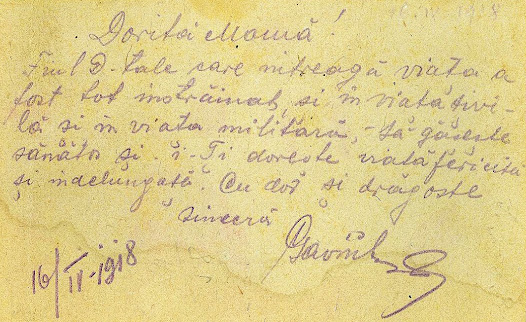 Dorita Mamă!
Fiul D-tale care întreagă viața a
fost tot instrăinat, și în viață țivi-
lă si in viata militară, - să găsește
sănătos si. i-Ti dorește viață fericită
și indelungată. Cu dor și dragoste
sinceră
16/IV-1918